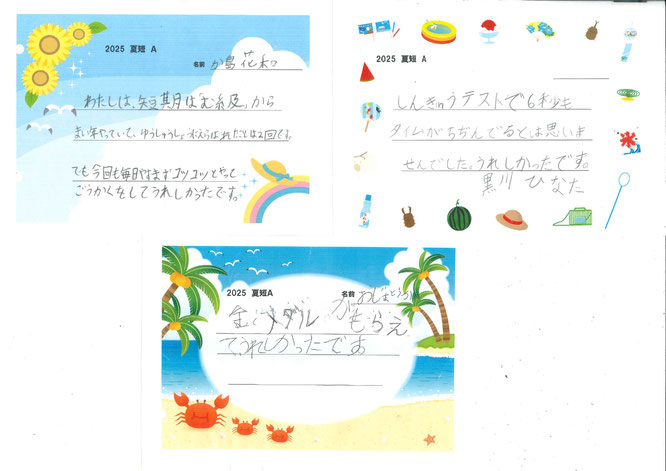 2025 夏短 A
名前 か島 花木
わたしは、短期は「む級」から
まい年やっていて、ゆうしゅうしょうがえらばれたことは2回です。
でも今回も毎日やすまずコツコツとやって
ごうかくをしてうれしかったです。
2025 夏短 A
しんきゅうテストで6秒も
タイムがちぢんでるとは思いま
せんでした。うれしかったです。
黒川 ひなた
氷
2025 夏短A
名前
金メダル がもらえ
てうれしかったです